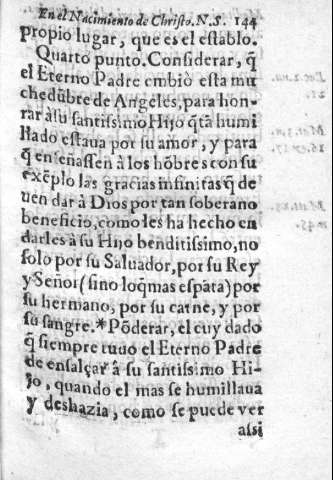 En el Nacimiento de Christo. N. S. 144
propio lugar, que es el establo.
Quarto punto. Considerar, q̃
el Eterno Padre embiò esta mu
chedũbre de Angeles, para hon-
rar à su santissimo Hijo q̃ tã humi
llado estaua por su amor, y para
q̃ enseñassen à los hõbres con su
exẽplo las gracias infinitas q̃ de
uen dar à Dios por tan soberano
beneficio, como les ha hecho en
darles à su Hijo benditissimo, no
solo por su Saluador, por su Rey
y Señor (sino lo q̃ mas espãta) por
su hermano, por su carne, y por
su sangre. * Põderar, el cuydado
q̃ siempre tuuo el Eterno Padre
de ensalçar à su santissimo Hi-
jo, quando el mas se humillaua
y deshazia, como se puede ver
assi